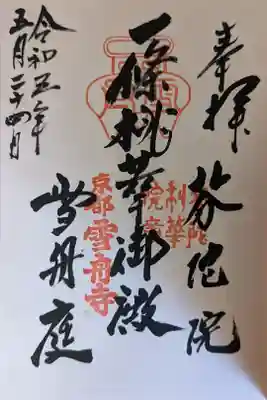 奉拝
芬陀院
一條桃華御殿
雪舟庭
京都雪舟寺
令和五年
五月二十四日